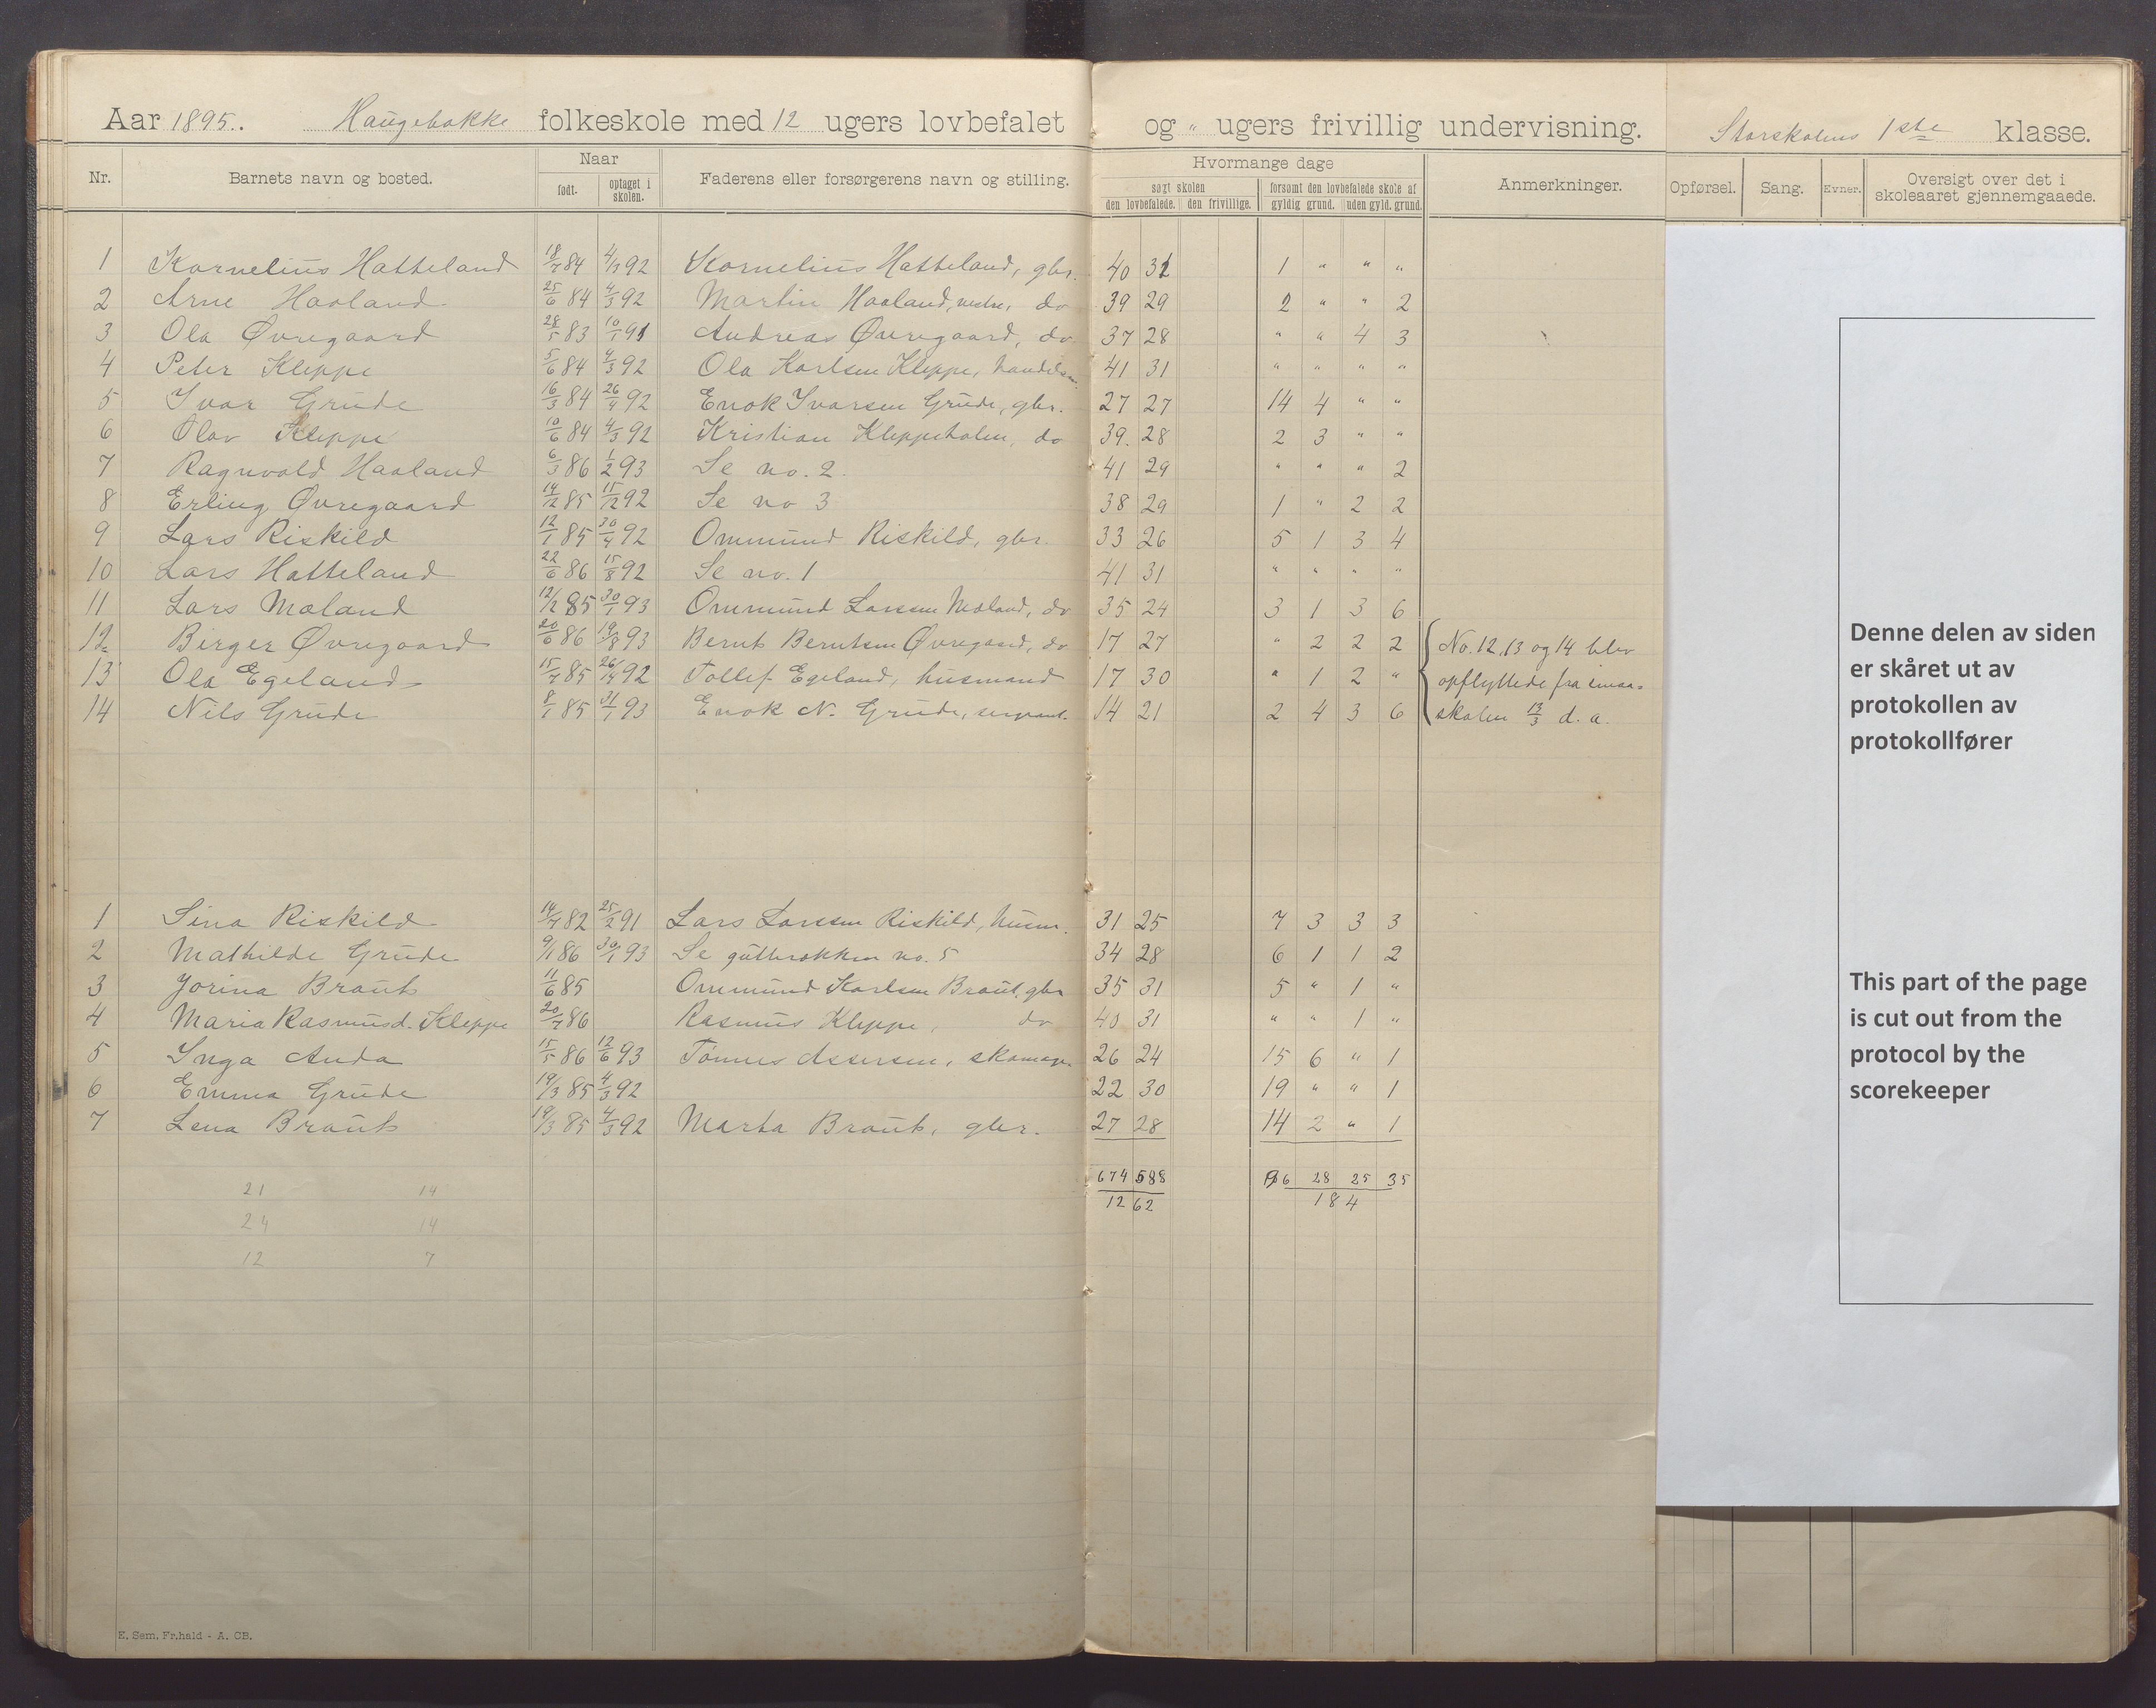 Aar 1895. Haugebakke folkeskole med 12 ugers lovbefalet og " ugers frivillig undervisning. Storskolens 1ste klasse.
Nr. Barnets navn og bosted. Naar født. optaget i skolen. Faderens eller forsørgerens navn og stilling. Hvormange dage søgt skolen den lovbefalede. den frivillige. forsømt den lovbefalede skole af gyldig grund. uden gyld. grund. Anmerkninger. Opførsel. Sang. Evner. Oversigt over det i skoleaaret gjennemgaaede.
1 Kornelius Hatteland 18/7 84 4/3 92 Kornelius Hatteland, gbr. 40 31 1 " " "
2 Arne Haaland 25/6 84 4/3 92 Martin Haaland, vestre, do 39 29 2 " " 2
3 Ola Øvregaard 28/5 83 10/1 91 Andreas Øvregaard, do 37 28 " " 4 3
4 Peter Kleppe 5/6 84 4/3 92 Ola Karlsen Kleppe, handelsm. 41 31 " " " "
5 Ivar Grude 16/3 84 26/4 92 Enok Ivarsen Grude, gbr. 27 27 14 4 " "
6 Olav Kleppe 10/6 84 4/3 92 Kristian Kleppeholen, do 39. 28 2 3 " "
7 Ragnvald Haaland 6/3 86 1/2 93 Se no. 2. 41 29 " " " 2
8 Erling Øvregaard 14/12 85 15/12 92 Se no 3 38 29 1 " 2 2
9 Lars Riskild 12/1 85 30/4 92 Ommund Riskild, gbr. 33 26 5 1 3 4
10 Lars Hatteland 22/6 86 15/8 92 Se no. 1 41 31 " " " "
11 Lars Mæland 12/2 85 30/1 93 Ommund Larsen Mæland, do 35 24 3 1 3 6
12 Birger Øvregaard 20/6 86 19/8 93 Bernt Berntsen Øvregaard, do 17 27 " 2 2 2 No. 12, 13 og 14 blev
13 Ola Egeland 15/7 85 26/4 92 Tollef Egeland, husmand 17 30 " 1 2 " opflyttede fra smaa-
14 Nils Grude 8/1 85 31/1 93 Enok N. Grude, sergeant. 14 21 2 4 3 6 skolen 13/3 d. a.
1 Sina Riskild 14/7 82 25/2 91 Lars Larsen Riskild, husm. 31 25 7 3 3 3
2 Mathilde Grude 9/1 86 30/1 93 Se gutterækken no. 5 34 28 6 1 1 2
3 Jorina Braut 11/6 85 Ommund Karlsen Braut, gbr 35 31 5 " 1 "
4 Maria Rasmusd. Kleppe 20/7 86 Rasmus Kleppe, do 40 31 " " 1 "
5 Inga Anda 15/5 86 12/6 93 Tønnes Assersen, skomager 26 24 15 6 " 1
6 Emma Grude 19/3 85 4/3 92 22 30 19 " " 1
7 Lena Braut 19/3 85 4/3 92 Marta Braut, gbr. 27 28 14 2 " 1
674 588 96 28 25 35
21 14 1262 184
24 14
12 7
E. Sem, Fr.hald - A. CB.
Denne delen av siden
er skåret ut av
protokollen av
protokollfører
This part of the page
is cut out from the
protocol by the
scorekeeper